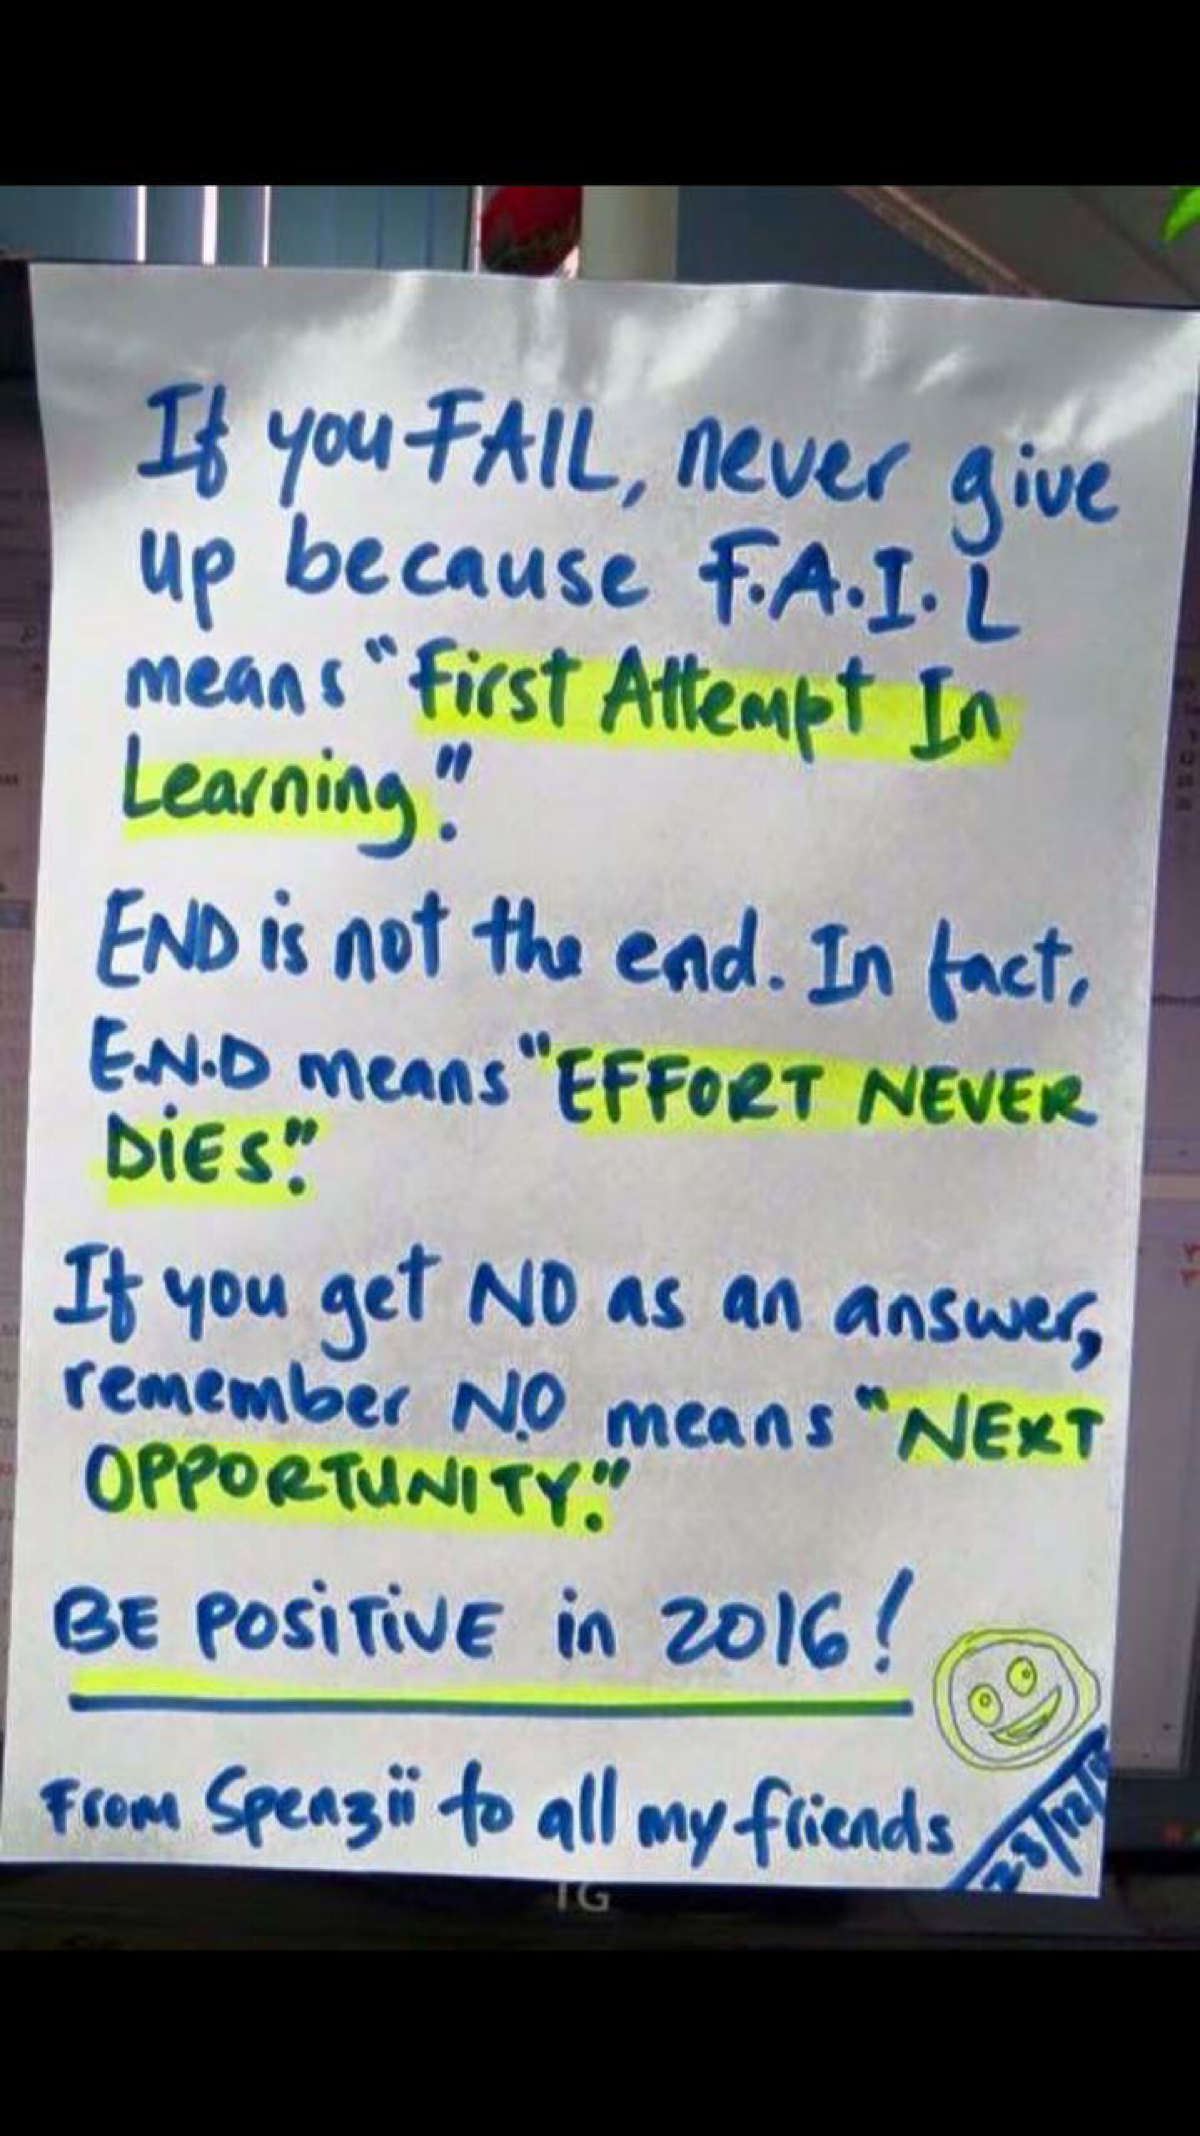 If you FAIL, never give
up because F.A.I.L
means "First Attempt In
Learning."
END is not the end. In fact,
E.N.D means "EFFORT NEVER
DiES."
If you get NO as an answer,
remember N.O means "NEXT
OPPORTUNITY."
BE POSiTiVE in 2016!
From Spenzii to all my friends